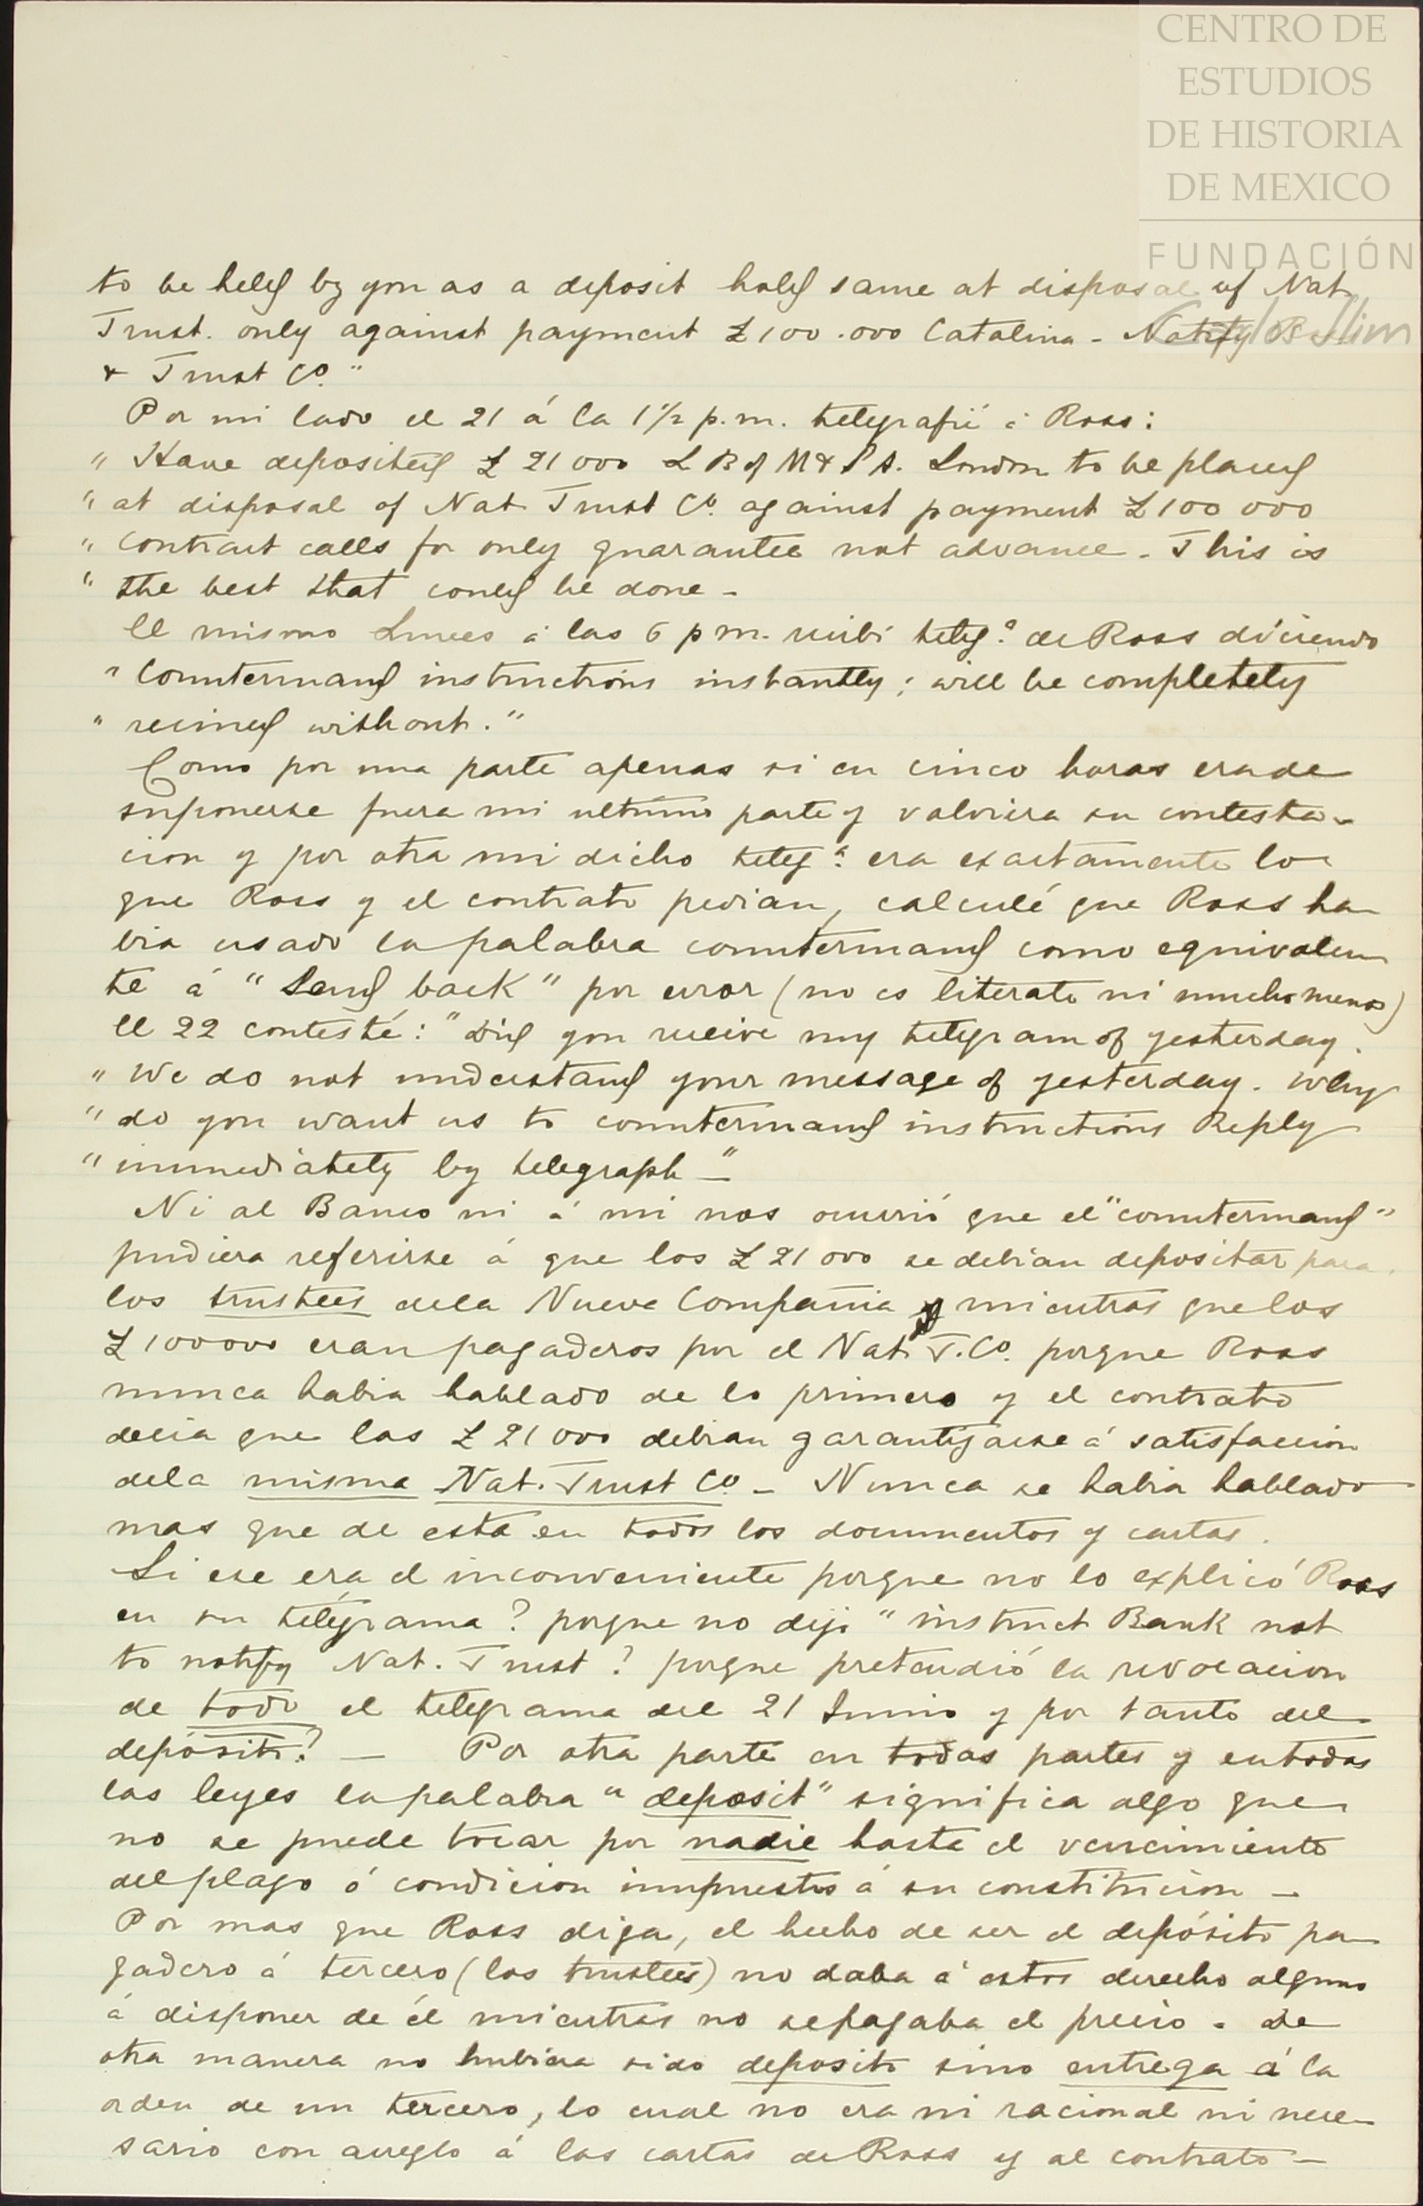 CENTRO DE
ESTUDIOS
DE HISTORIA
DE MEXICO
FUNDACIÓN
Carlos Slim
to be held by you as a deposit hold same at disposal of Nat.
Trust. only against payment £100.000 Catalina - Notify
& Trust Cº."
Por mi lado el 21 á la 1½ p.m. telegrafié á Ross:
" Have deposited £ 21000 L B of M & S A. London to be placed
" at disposal of Nat Trust Cº. against payment £100 000
" contract calls for only guarantee not advance. This is
" the best that could be done -
El mismo Lunes á las 6 p m. recibí telegª. de Ross diciendo
" Countermand instructions instantly; will be completely
" ruined without."
Como por una parte apenas si en cinco horas era de
suponerse fuera mi ultimo parte y volviera su contesta-
cion y por otra mi dicho telegª. era exactamente lo
que Ross y el contrato pedian, calculé que Ross ha
bia usado la palabra countermand como equivalen
te á "Send back" por error (no es literato ni mucho menos)
El 22 contesté: "Did you receive my telegram of yesterday.
" We do not understand your message of yesterday. Why
" do you want us to countermand instructions Reply
" immediately by telegraph -"
Ni al Banco ni á mi nos ocurrió que el "countermand"
pudiera referirse á que los £ 21 000 se debian depositar para
los trustees dela Nueva Compañia y mientras que los
£ 100000 eran pagaderos por el Nat. T. Cº. porque Ross
nunca habia hablado de lo primero y el contrato
decia que las £ 21 000 debian garantizarse á satisfaccion
dela misma Nat. Trust Cº - Nunca se habia hablado
mas que de esta en todos los documentos y cartas.
Si ese era el inconveniente porque no lo explicó Ross
en su telégrama? porque no dijo "instruct Bank not
to notify Nat. Trust? porque pretendió la revocacion
de todo el telegrama del 21 Junio y por tanto del
depósito? - Por otra parte en todas partes y en todas
las leyes la palabra "deposit" significa algo que
no se puede tocar por nadie hasta el vencimiento
del plazo ó condicion impuestos á su constitucion -
Por mas que Ross diga, el hecho de ser el depósito pa
gadero á tercero (los trustees) no daba á estos derecho alguno
á disponer de él mientras no se pagaba el precio. De
otra manera no hubiera sido deposito sino entrega á la
orden de un tercero, lo cual no era ni racional ni nece
sario con arreglo á las cartas de Ross y al contrato -